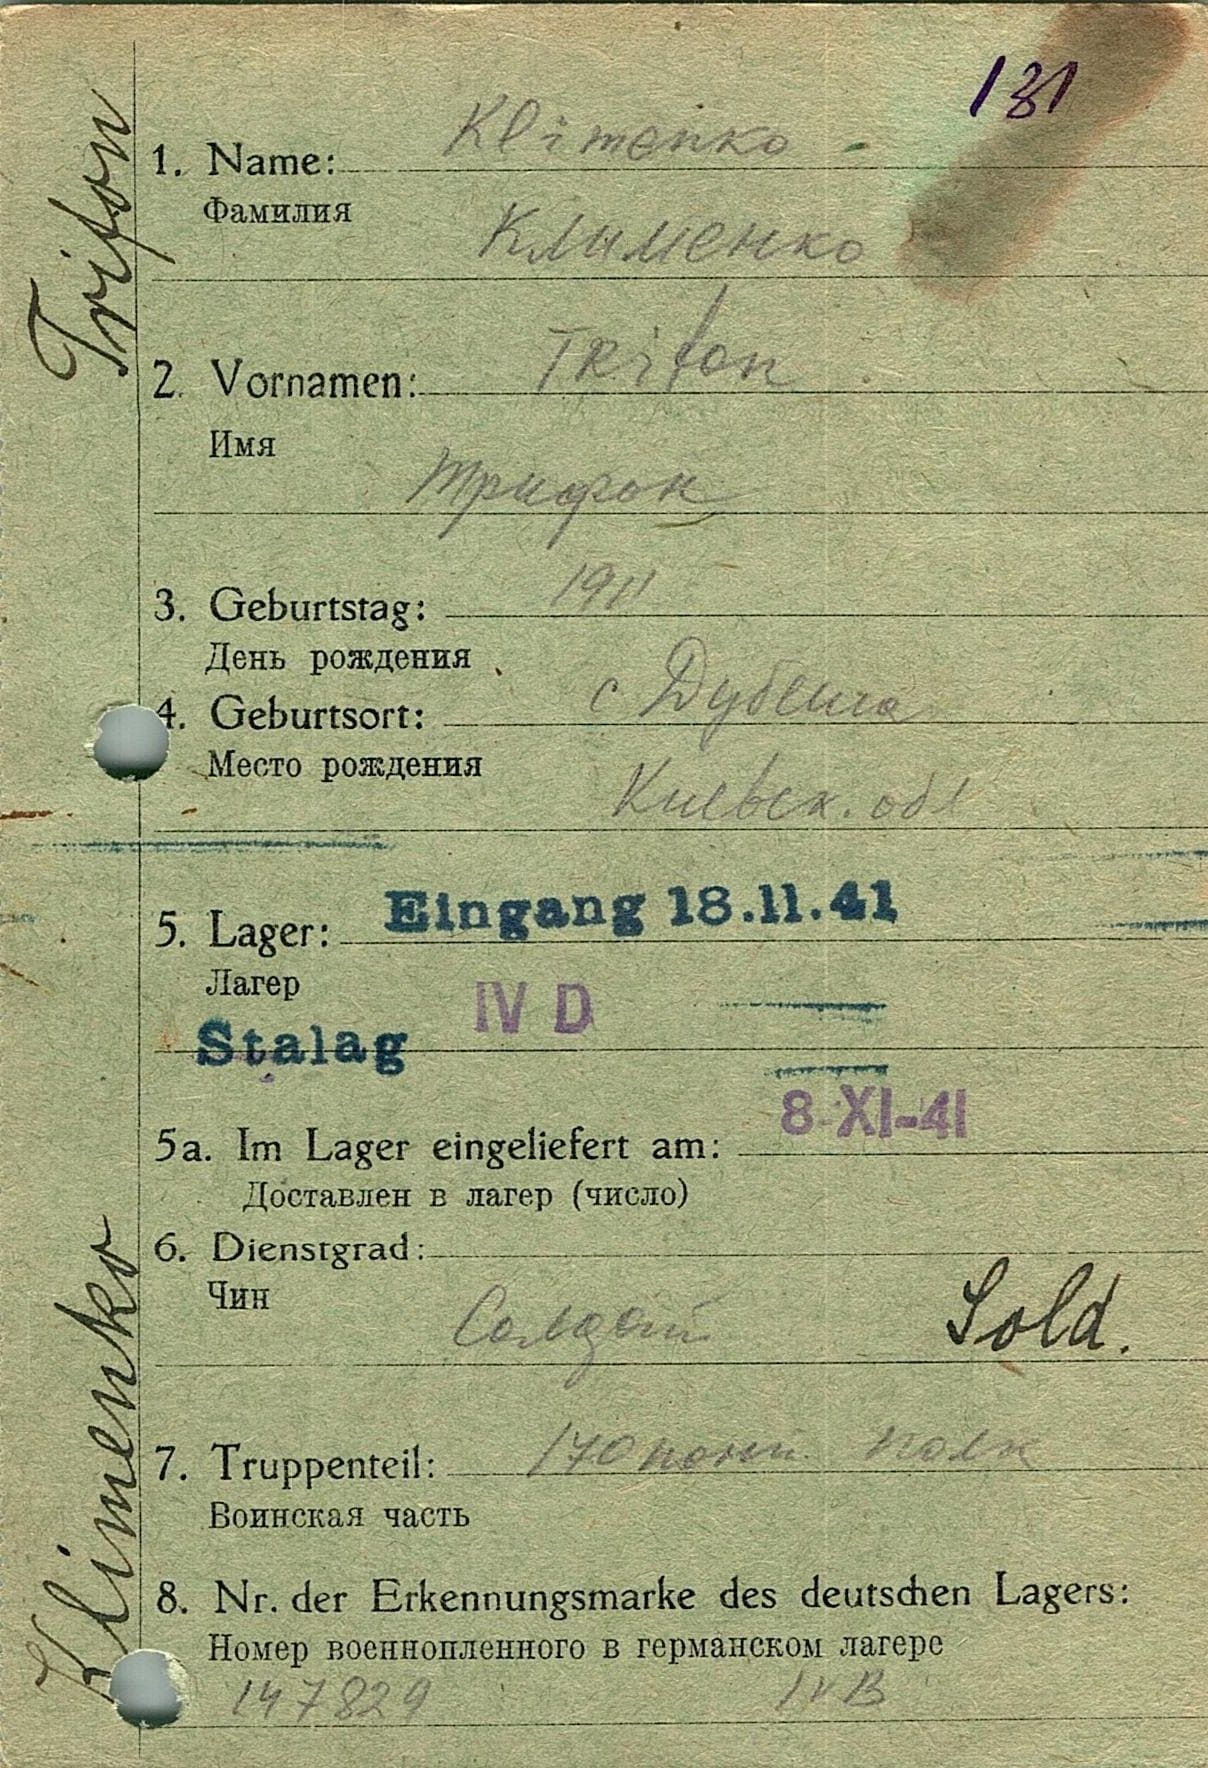 131
Trifon
1. Name: Klimenko
Фамилия
Клименко
2. Vornamen: Trifon
Имя
Трифон
3. Geburtstag: 1911
День рождения
4. Geburtsort: с
Место рождения
Киевск. обл
5. Lager: Eingang 18.11.41
Лагер
IV D
Stalag
8-XI-41
5a. Im Lager eingeliefert am:
Доставлен в лагер (число)
6. Dienstgrad:
Чин
Солдат Sold.
7. Truppenteil: 170 полк
Воинская часть
Klimenko
8. Nr. der Erkennungsmarke des deutschen Lagers:
Номер военнопленного в германском лагере
147829 IV B